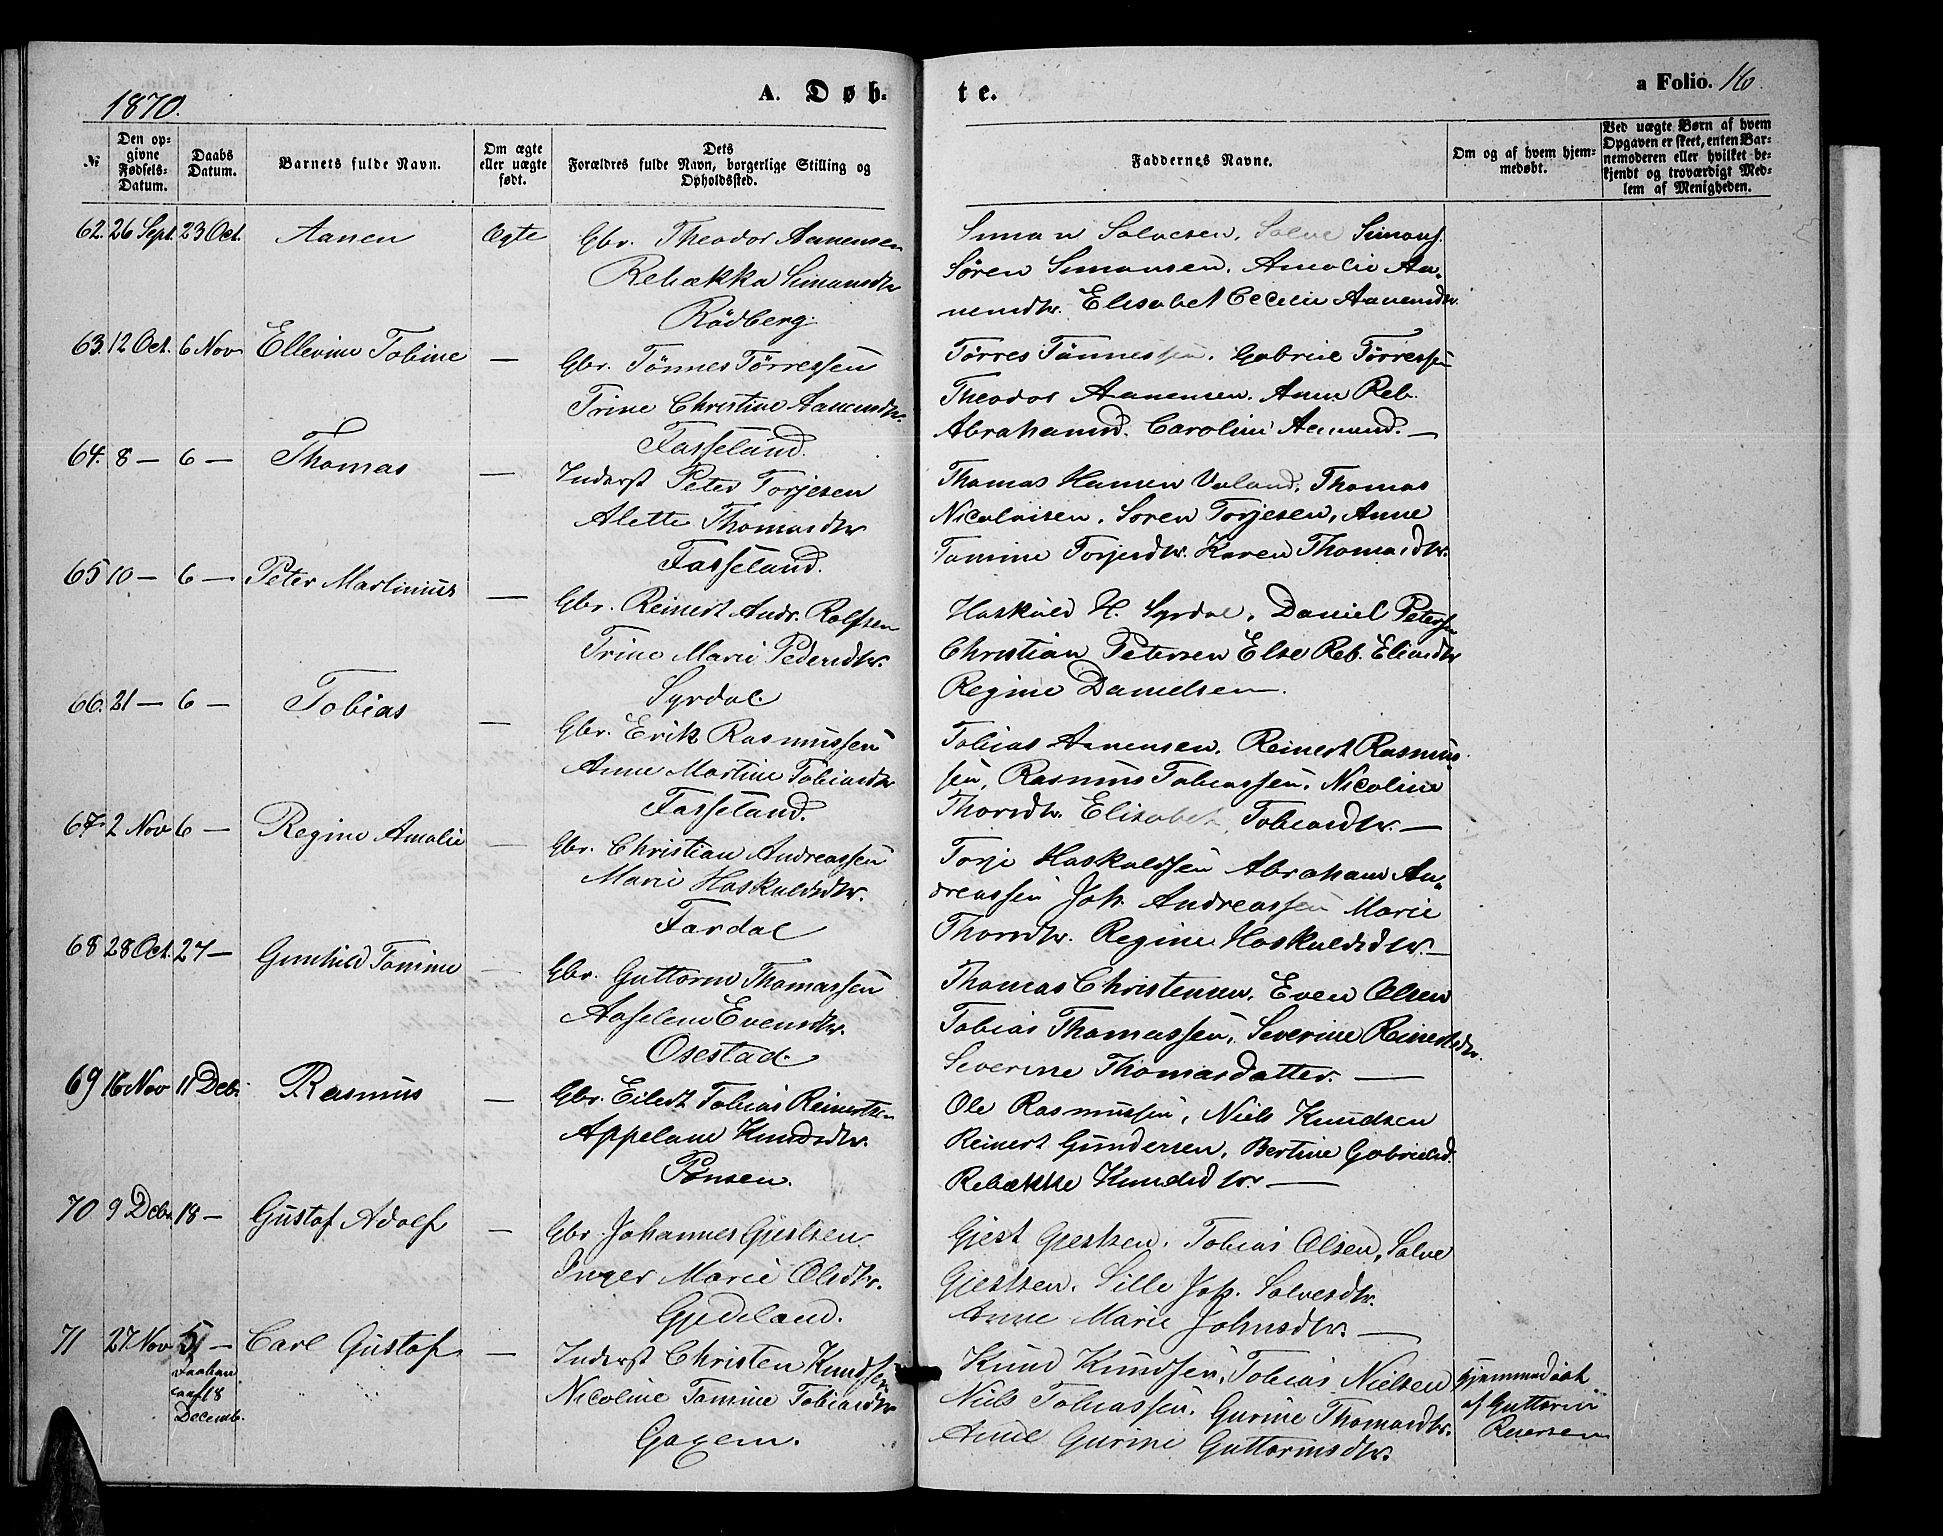 1870.
A. Døb- te.
a Folio. 16.
№
Den op-
givne
Fødsels-
Datum.
Daabs
Datum.
Barnets fulde Navn.
Om ægte
eller uægte
født.
Dets
Forældres fulde Navn, borgerlige Stilling og
Opholdssted.
Faddernes Navne.
Om og af hvem hjem-
medøbt.
Ved uægte Børn af hvem
Opgaven er skeet, enten Bar-
nemoderen eller hvilket be-
kjendt og troværdigt Med-
lem af Menigheden.
62. 26 Sept. 23 Oct. Aanen Ægte Gbr. Theodor Aanensen
Rebækka Simonsdtr
Rödberg.
Simon Salvesen. Salve Simons.
Søren Simonsen. Amalie Aa-
nensdtr. Elisabet Cecelie Aanensdtr.
63. 12 Oct. 6 Nov Ellevine Tobine — Gbr. Tönnes Tørressen
Trine Christine Aanensdtr.
Fasseland.
Tørres Tönnessen. Gabriel Tørressen
Theodor Aanensen. Anne Reb.
Abrahamsd. Caroline Aanensd. —
64. 8 — 6 — Thomas — Inderst Peter Torjesen
Alette Thomasdtr
Fasseland.
Thomas Hansen Valand. Thomas
Nicolaisen. Soren Torjesen, Anne
Tomine Torjesdtr. Karen Thomasdtr.
65 10 — 6 — Peter Martinius — Gbr. Reinert Andr. Rolfsen
Trine Marie Pedersdtr.
Syrdal
Haskuld H. Syrdal. Daniel Petersen
Christian Petersen Else Reb. Eliasdtr
Regine Danielsen.
66. 21 — 6 — Tobias — Gbr. Erik Rasmussen
Anne Martine Tobiasdtr
Fasseland.
Tobias Aanensen. Reinert Rasmus-
sen, Rasmus Tobiassen. Nicoline
Thorsdtr. Elisabet Tobiasdtr. —
67. 2 Nov 6 — Regine Amalie — Gbr. Christian Andreassen
Marie Haskuldsdtr.
Fardal
Torje Haskuldsen Abraham An-
dreassen Joh. Andreassen Marie
Thorsdtr. Regine Haskuldsdtr. —
68 28 Oct. 27 — Gunhild Tomine — Gbr. Guttorm Thomassen
Aaselene Evensdtr.
Osestad.
Thomas Christensen, Even Olsen
Tobias Thomassen, Severine Reinertsdtr.
Severine Thomasdatter. —
69 16 Nov 11 Debr. Rasmus — Gbr. Eilert Tobias Reinertsen
Appelane Knudsdtr.
Ole Rasmussen, Niels Knudsen
Reinert Gundersen, Bertine Gabrielsd.
Rebække Knudsdtr. —
70 9 Debr. 18 — Gustaf Adolf — Gbr. Johannes Gjestsen
Inger Marie Olsdtr.
Gjedeland.
Gjest Gjestsen. Tobias Olsen, Salve
Gjestsen. Sille Joh. Salvesdtr.
Anne Marie Johnsdtr. —
71 27 Nov 5 — Carl Gustaf — Inderst Christen Knudsen
Decemb. Nicoline Tomine Tobiasdtr
Knud Knudsen, Tobias Nielsen
Niels Tobiassen. Gurine Thomasdtr.
Anne Gurine Guttormsdtr.
hjemmedøbt
af Guttorm